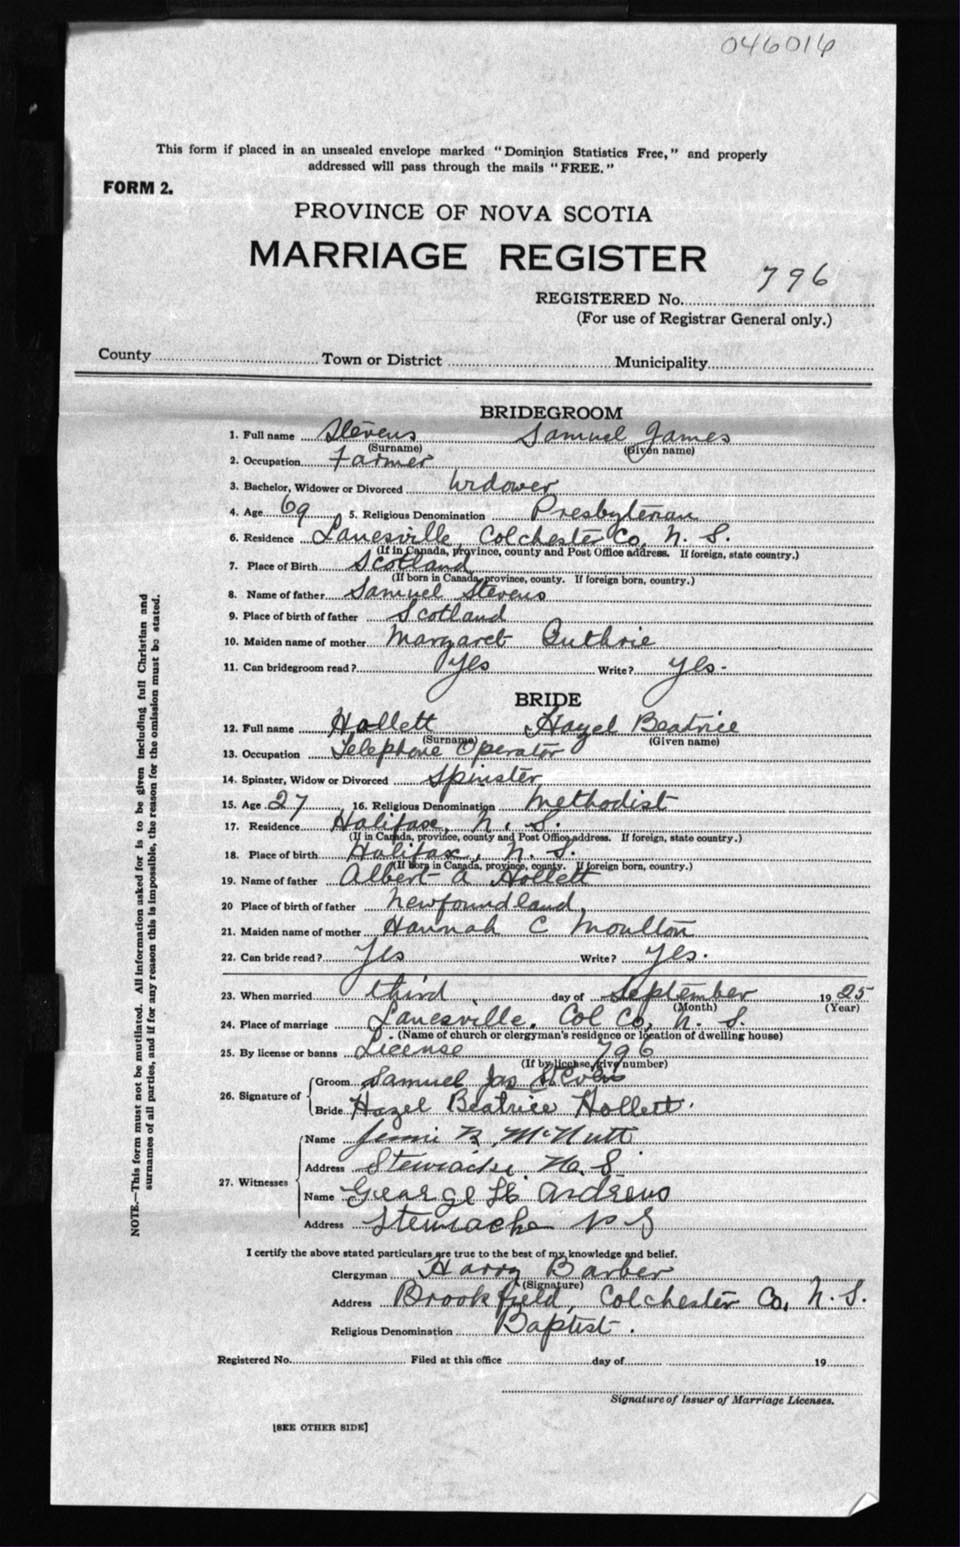 046016
This form if placed in an unsealed envelope marked "Dominion Statistics Free," and properly
addressed will pass through the mails "FREE."
FORM 2.
PROVINCE OF NOVA SCOTIA
MARRIAGE REGISTER
796
REGISTERED No.
(For use of Registrar General only.)
County Town or District Municipality
BRIDEGROOM
1. Full name Stevens Samuel James
(Surname) (Given name)
2. Occupation Farmer
3. Bachelor, Widower or Divorced Widower
4. Age 69 5. Religious Denomination Presbyterian
6. Residence Lanesville, Colchester Co, N. S.
(If in Canada, province, county and Post Office address. If foreign, state country.)
7. Place of Birth Scotland
(If born in Canada, province, county. If foreign born, country.)
8. Name of father Samuel Stevens
9. Place of birth of father Scotland
10. Maiden name of mother Margaret Guthrie
11. Can bridegroom read? Yes Write? Yes.
BRIDE
12. Full name Hollett Hazel Beatrice
(Surname) (Given name)
13. Occupation Telephone Operator
14. Spinster, Widow or Divorced Spinster
15. Age 27 16. Religious Denomination Methodist
17. Residence Halifax, N. S.
(If in Canada, province, county and Post Office address. If foreign, state country.)
18. Place of birth Halifax, N. S.
(If born in Canada, province, county. If foreign born, country.)
19. Name of father Albert A Hollett
20 Place of birth of father Newfoundland,
21. Maiden name of mother Hannah C Moulton
22. Can bride read? Yes Write? Yes.
23. When married third day of September 1925
(Month) (Year)
24. Place of marriage Lanesville, Col Co, N. S.
(Name of church or clergyman's residence or location of dwelling house)
25. By license or banns License 796
(If by license, give number)
26. Signature of
Groom Samuel Jas Stevens
Bride Hazel Beatrice Hollett.
27. Witnesses
Name Jennie B. McNutt
Address Stewiacke N. S.
Name George H. Andrews
Address Stewiacke N S
I certify the above stated particulars are true to the best of my knowledge and belief.
Clergyman Harry Barber
(Signature)
Address Brookfield, Colchester Co, N. S.
Religious Denomination Baptist.
Registered No. Filed at this office day of 19
Signature of Issuer of Marriage Licenses.
[SEE OTHER SIDE]
NOTE.—This form must not be mutilated. All information asked for is to be given including full Christian and
surnames of all parties, and if for any reason this is impossible, the reason for the omission must be stated.